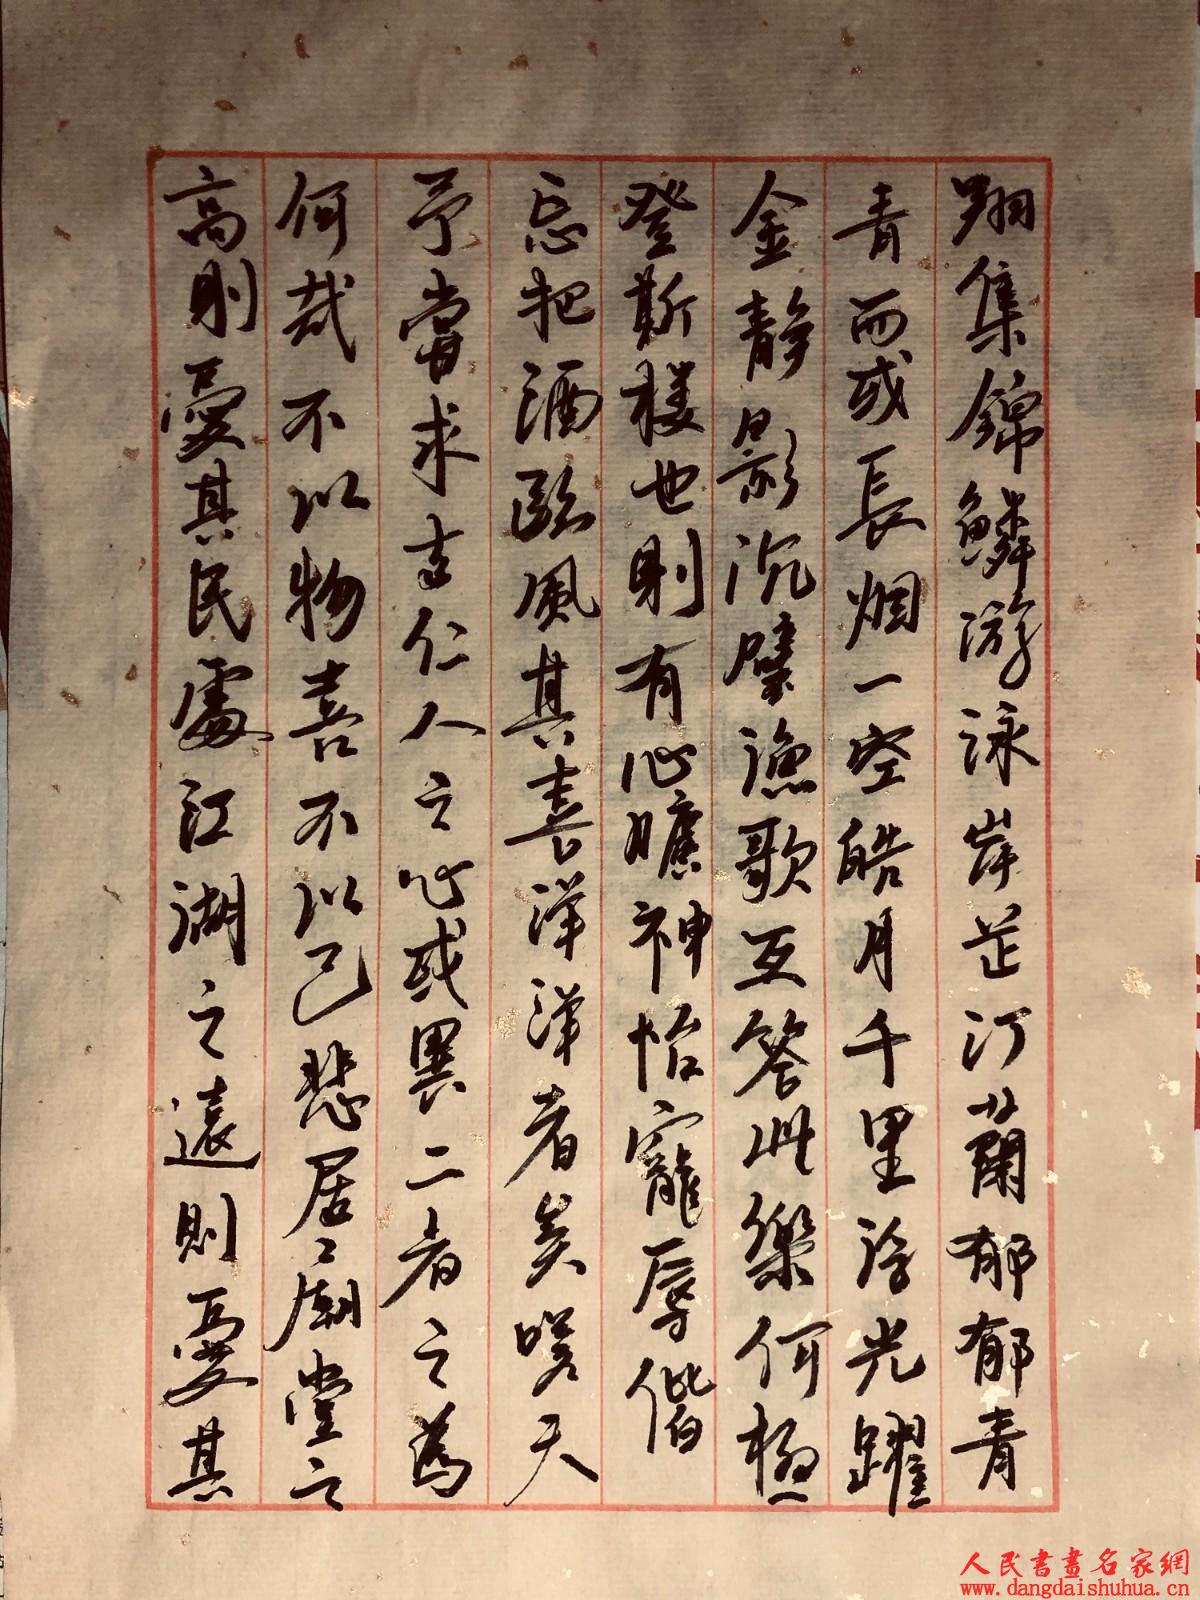 翔集錦鱗游泳岸芷汀蘭郁郁青
青而或長烟一空皓月千里浮光躍
金静影沉璧漁歌互答此樂何極
登斯樓也則有心曠神怡寵辱偕
忘把酒臨風其喜洋洋者矣嗟天
予嘗求古仁人之心或異二者之為
何哉不以物喜不以己悲居居廟堂之
高則憂其民處江湖之遠則憂其
人民書畫名家網
www.dangdaishuhua.com.cn